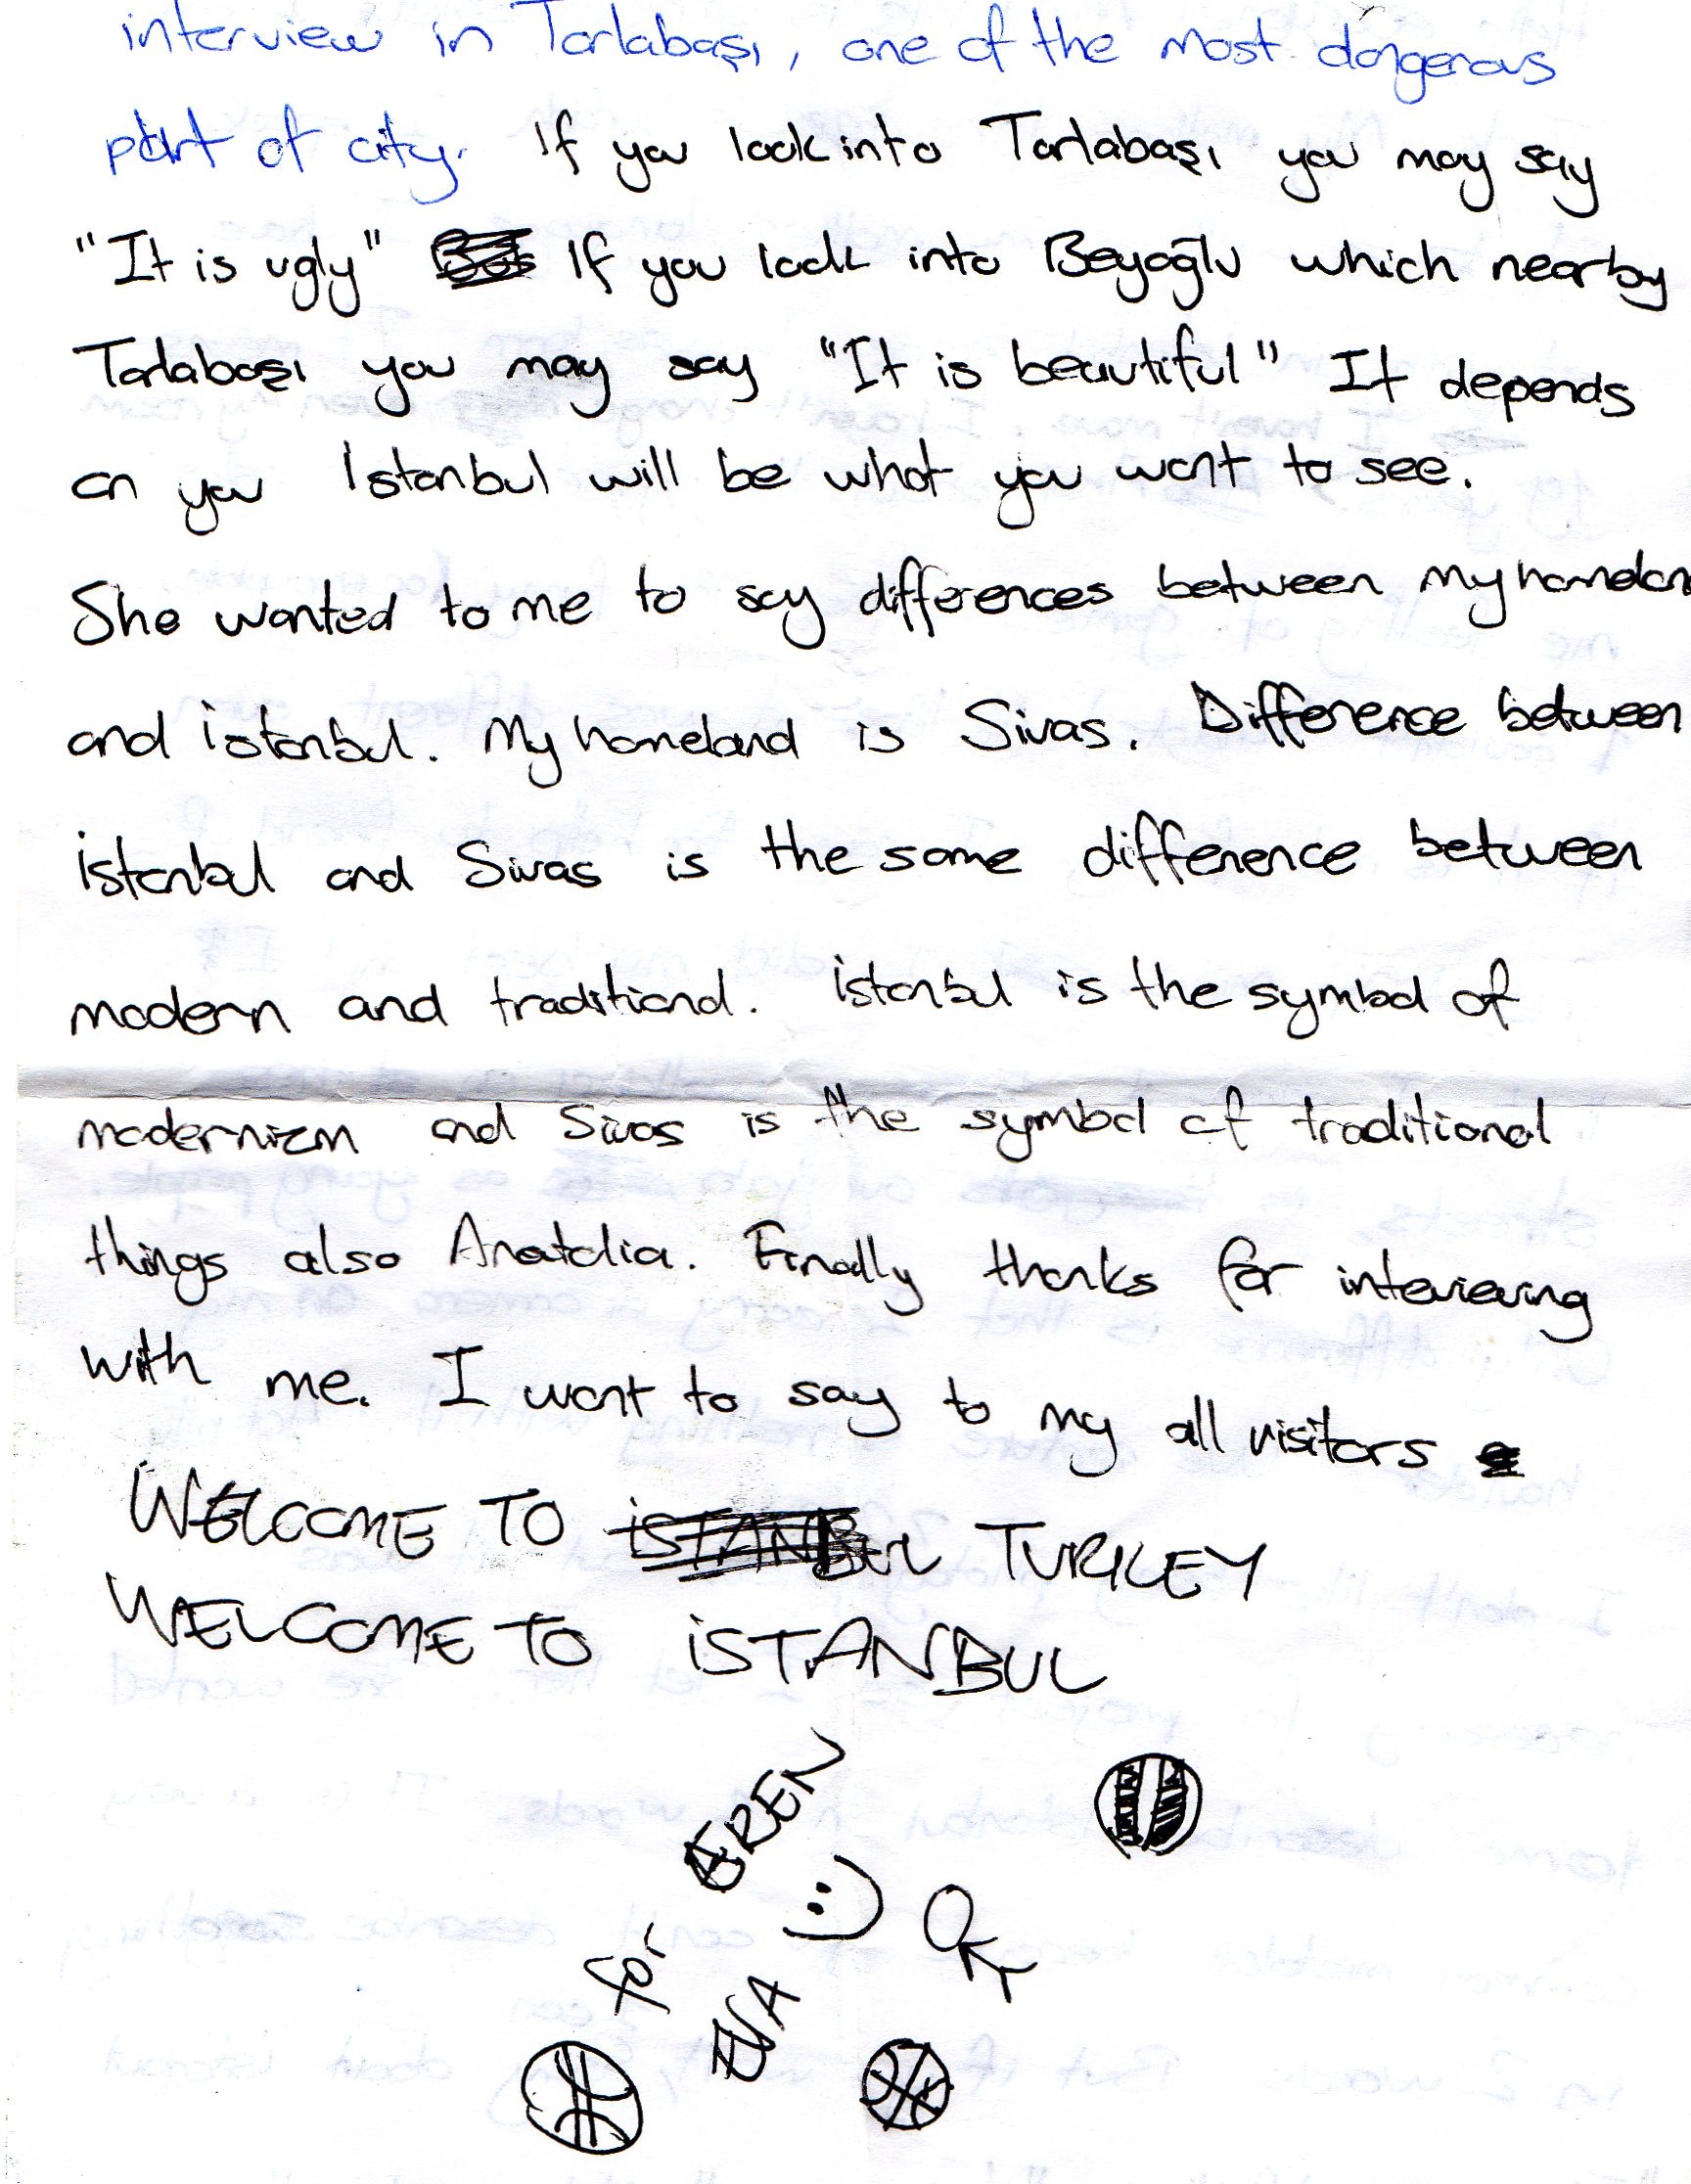 interview in Tarlabaşı, one of the most dangerous
part of city. If you look into Tarlabaşı you may say
"It is ugly" If you look into Beyoğlu which nearby
Tarlabaşı you may say "It is beautiful" It depends
on you Istanbul will be what you want to see.
She wanted to me to say differences between my homelan
and istanbul. My homeland is Sivas. Difference between
istanbul and Sivas is the same difference between
modern and traditional. istanbul is the symbol of
modernizm and Sivas is the symbol of traditional
things also Anatolia. Finally thanks for interviewing
with me. I want to say to my all visitors
WELCOME TO iSTANBUL TURKEY
WELCOME TO iSTANBUL
EREN
:)
OKT
for
EVA